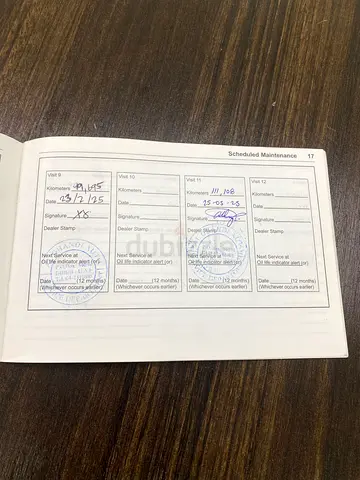 Scheduled Maintenance 17
Visit 9
Kilometers
Date 23/2/25
Signature XX
Dealer Stamp
Next Service at
Oil life indicator alert (or)
Date (12 months)
(Whichever occurs earlier)
Visit 10
Kilometers
Date
Signature
Dealer Stamp
Next Service at
Oil life indicator alert (or)
Date (12 months)
(Whichever occurs earlier)
Visit 11
Kilometers 111,708
Date
Signature
Dealer Stamp
Next Service at
Oil life indicator alert (or)
Date (12 months)
(Whichever occurs earlier)
Visit 12
Kilometers
Date
Signature
Dealer Stamp
Next Service at
Oil life indicator alert (or)
Date (12 months)
(Whichever occurs earlier)
dubizzle